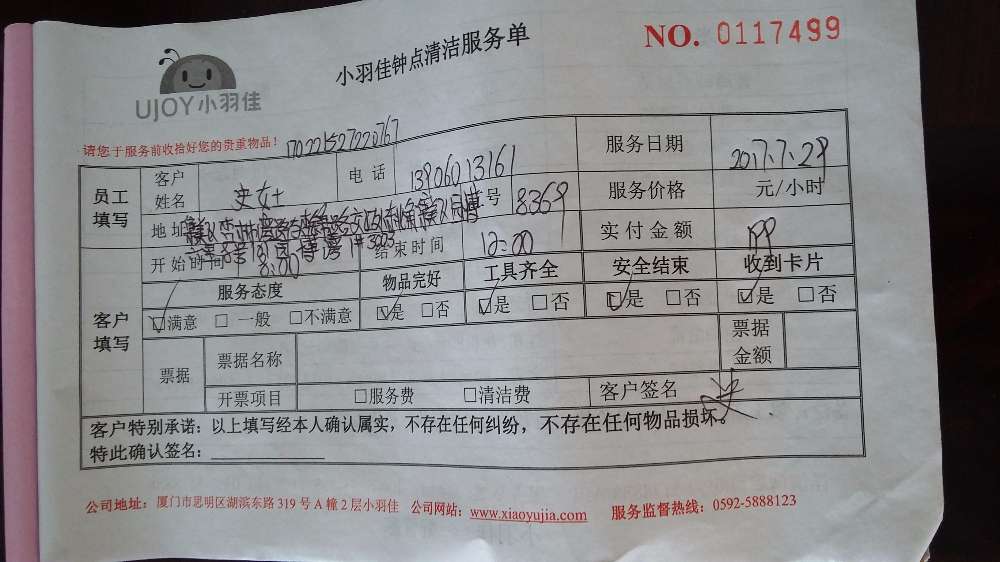 UJOY小羽佳
小羽佳钟点清洁服务单
NO. 0117499
请您于服务前收拾好您的贵重物品！
员工填写 客户姓名 史女士 电话 服务日期 2017.7.29
地址 号 8369 服务价格 元/小时
开始时间 8:00 结束时间 12:00 实付金额
客户填写 服务态度 物品完好 工具齐全 安全结束 收到卡片
☑满意 □一般 □不满意 ☑是 □否 ☑是 □否 ☑是 □否 ☑是 □否
票据 票据名称 票据金额
开票项目 □服务费 □清洁费 客户签名
客户特别承诺：以上填写经本人确认属实，不存在任何纠纷，不存在任何物品损坏。
特此确认签名：
公司地址：厦门市思明区湖滨东路 319 号 A 幢 2 层小羽佳 公司网站：www.xiaoyujia.com 服务监督热线：0592-5888123